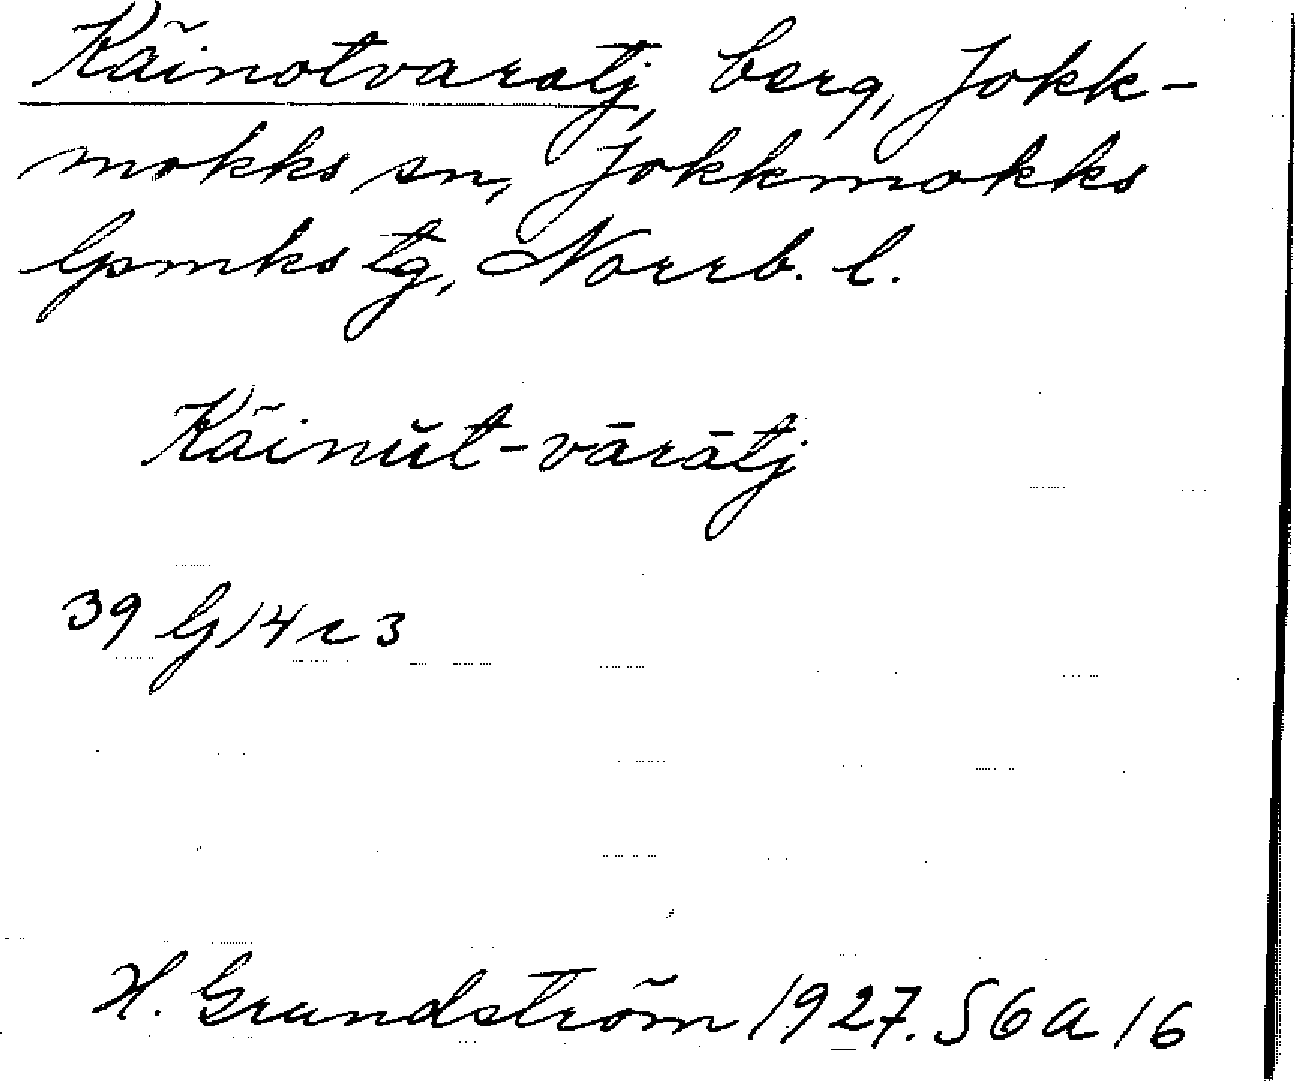 Käinotvaratj, berg, Jokk-
mokks sn, Jokkmokks
lpmks tg, Norrb. l.
Käinŭt-vāràtj
39 G 14 c 3
H. Grundström 1927. S 6 a 16